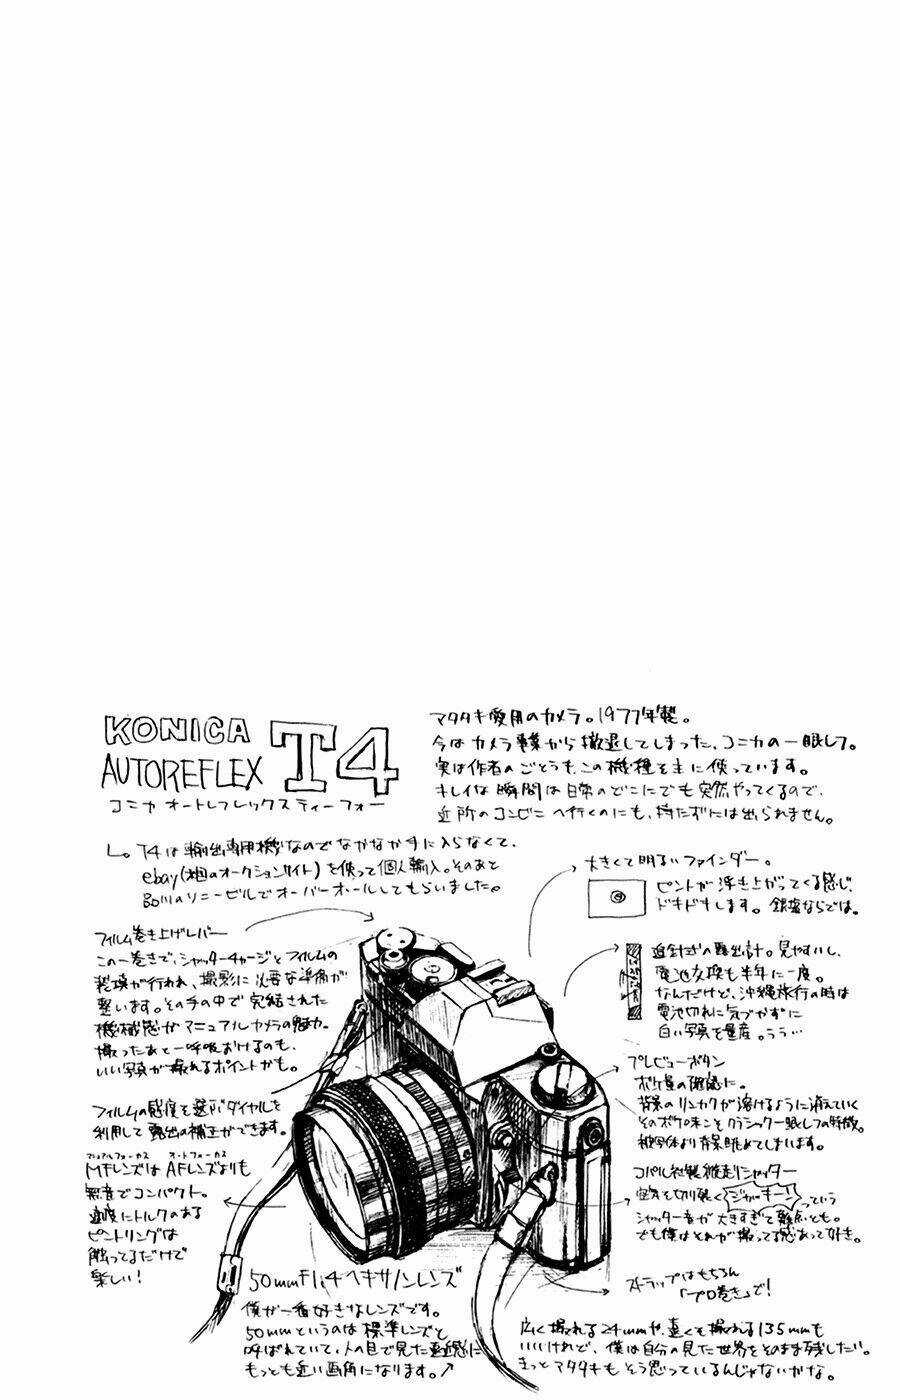 KONICA
AUTOREFLEX T4
コニカ オートレフレックス ティーフォー
マタタキ愛用のカメラ。1977年製。
今はカメラ事業から撤退してしまった、コニカの一眼レフ。
実は作者のごとうも、この機種を主に使っています。
キレイな瞬間は日常のどこにでも突然やってくるので、
近所のコンビニへ行くのにも、持たずには出られません。
T4は輸出専用機なのでなかなか手に入らなくて、
ebay(米国のオークションサイト)を使って個人輸入。そのあと
品川のソニービルでオーバーオールしてもらいました。
大きくて明るいファインダー。
ピントが浮き上がってくる感じ、
ドキドキします。銀塩ならでは。
フィルム巻き上げレバー
この一巻きで、シャッターチャージとフィルムの
が行われ、撮影に必要な準備が
整います。その手の中で完結された
機械感がマニュアルカメラの魅力。
撮ったあと一呼吸おけるのも、
いい写真が撮れるポイントかも。
追針式の露出計。見やすいし、
電池交換も半年に一度。
なんだけど、沖縄旅行の時は
電池切れに気づかずに
白い写真を量産。うう…
フィルムの感度を選ぶダイヤルを
利用して露出の補正ができます。
プレビューボタン
ボケ量の確認に。
背景のリンカクが溶けるように消えていく
そのボケ味こそクラシック一眼レフの特徴。
被写体より背景眺めてしまいます。
マニュアルフォーカス オートフォーカス
MFレンズはAFレンズよりも
無音でコンパクト。
適度にトルクのある
ピントリングは
触ってるだけで
楽しい!
コパル社製縦走りシャッター
空気を切り裂く ジャキーン! っていう
シャッター音が大きすぎて難点とも。
でも僕はそれが撮ってる感あって好き。
ストラップはもちろん
「プロ巻き」で!
50mm F1.4 ヘキサノンレンズ
僕が一番好きなレンズです。
50mmというのは標準レンズと
呼ばれていて、人の目で見た遠近感に
もっとも近い画角になります。
広く撮れる24mmや、遠くを撮れる135mmも
いいけれど、僕は自分の見た世界をそのまま残したい。
きっとマタタキもそう思っているんじゃないかな。